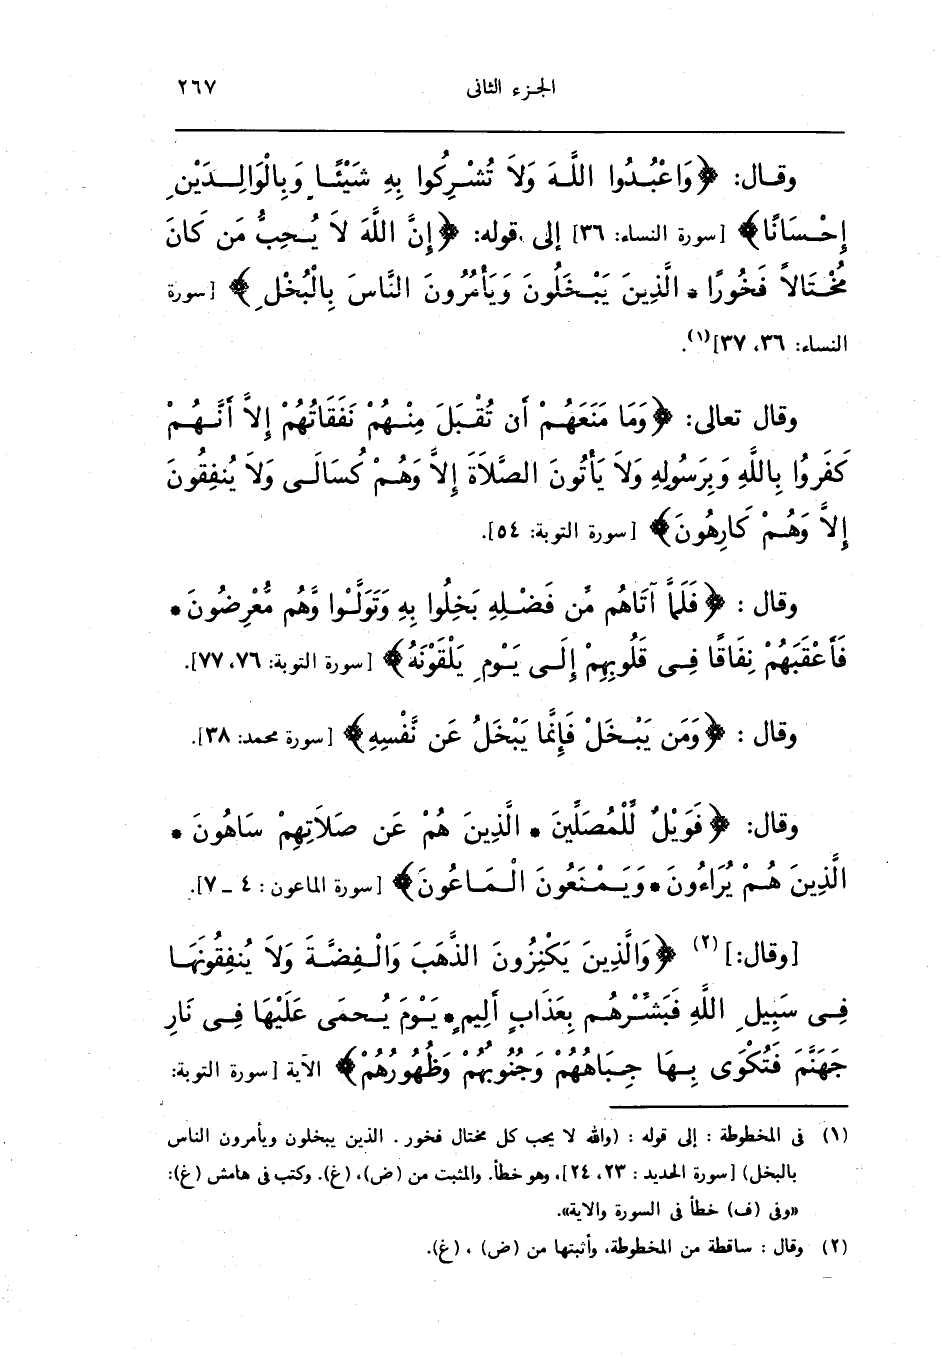 الجزء الثانى ٢٦٧
وقال: ﴿وَاعْبُدُوا اللَّهَ وَلاَ تُشْرِكُوا بِهِ شَيْئًا وَبِالْوَالِدَيْنِ
إِحْسَانًا﴾ [سورة النساء: ٣٦] إلى قوله: ﴿إِنَّ اللَّهَ لاَ يُحِبُّ مَن كَانَ
مُخْتَالاً فَخُورًا * الَّذِينَ يَبْخَلُونَ وَيَأْمُرُونَ النَّاسَ بِالْبُخْلِ﴾ [سورة
النساء: ٣٦، ٣٧](١).
وقال تعالى: ﴿وَمَا مَنَعَهُمْ أَن تُقْبَلَ مِنْهُمْ نَفَقَاتُهُمْ إِلاَّ أَنَّهُمْ
كَفَرُوا بِاللَّهِ وَبِرَسُولِهِ وَلاَ يَأْتُونَ الصَّلاَةَ إِلاَّ وَهُمْ كُسَالَى وَلاَ يُنفِقُونَ
إِلاَّ وَهُمْ كَارِهُونَ﴾ [سورة التوبة: ٥٤].
وقال : ﴿فَلَمَّا آتَاهُم مِّن فَضْلِهِ بَخِلُوا بِهِ وَتَوَلَّوْا وَّهُم مُّعْرِضُونَ *
فَأَعْقَبَهُمْ نِفَاقًا فِى قُلُوبِهِمْ إِلَى يَوْمِ يَلْقَوْنَهُ﴾ [سورة التوبة: ٧٦، ٧٧].
وقال : ﴿وَمَن يَبْخَلْ فَإِنَّمَا يَبْخَلُ عَن نَّفْسِهِ﴾ [سورة محمد: ٣٨].
وقال: ﴿فَوَيْلٌ لِّلْمُصَلِّينَ * الَّذِينَ هُمْ عَن صَلاَتِهِمْ سَاهُونَ *
الَّذِينَ هُمْ يُرَاءُونَ * وَيَمْنَعُونَ الْمَاعُونَ﴾ [سورة الماعون : ٤ ــ ٧].
[وقال:] (٢) ﴿وَالَّذِينَ يَكْنِزُونَ الذَّهَبَ وَالْفِضَّةَ وَلاَ يُنفِقُونَهَا
فِى سَبِيلِ اللَّهِ فَبَشِّرْهُم بِعَذَابٍ أَلِيمٍ * يَوْمَ يُحمَى عَلَيْهَا فِى نَارِ
جَهَنَّمَ فَتُكْوَى بِهَا جِبَاهُهُمْ وَجُنُوبُهُمْ وَظُهُورُهُمْ﴾ الآية [سورة التوبة:
(١) فى المخطوطة : إلى قوله : (والله لا يحب كل مختال فخور . الذين يبخلون ويأمرون الناس
بالبخل) [سورة الحديد : ٢٣، ٢٤]، وهو خطأ. والمثبت من (ض)، (غ). وكتب فى هامش (غ):
«وفى (ف) خطأ فى السورة والاية».
(٢) وقال : ساقطة من المخطوطة، وأثبتها من (ض) ، (غ).